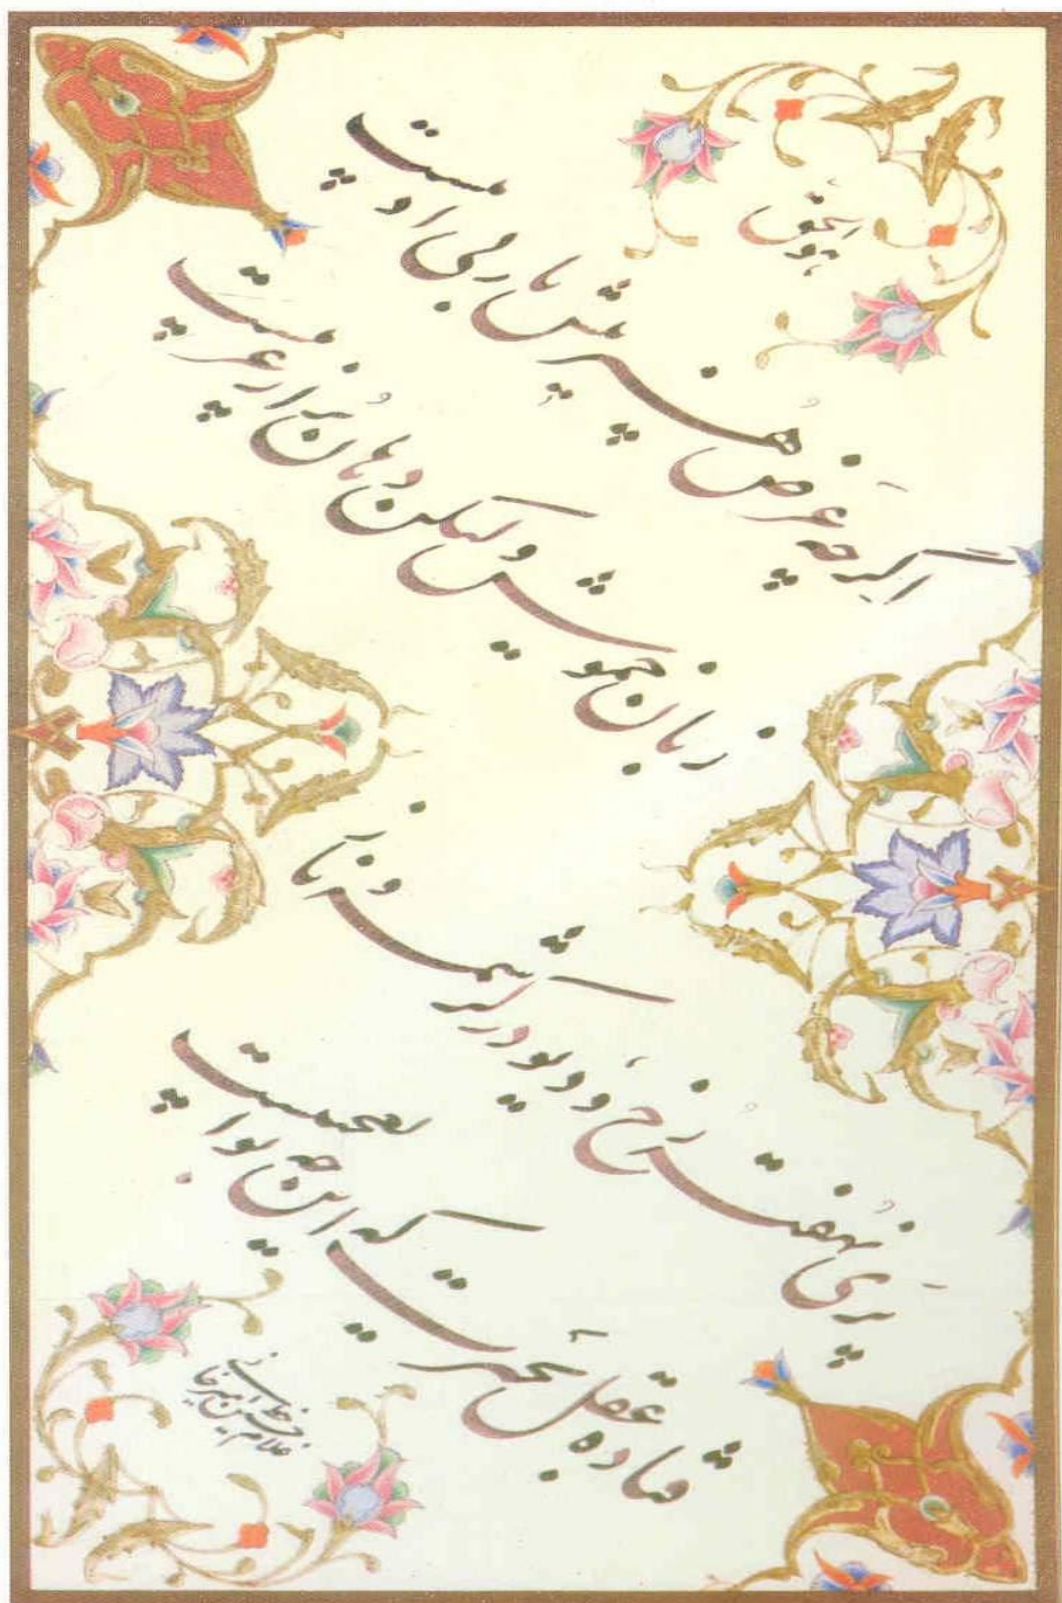 هوالحق
اگرچه عرض هنر پیش یار بی ادبیست
زبان خموش ولیکن دهان پُر از عربیست
پری نهفته رُخ و دیو در کرشمه و ناز
فتاده عقل بحیرت که این چه بوالعجبیست
خط غلامحسین امیرخانی